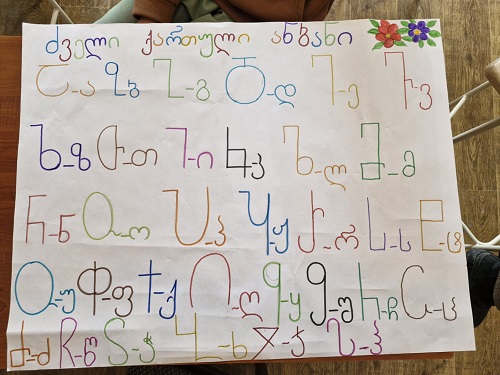 ძველი ქართული ანბანი
Ⴀ-ა Ⴁ-ბ Ⴂ-გ Ⴃ-დ Ⴄ-ე Ⴅ-ვ
Ⴆ-ზ Ⴇ-თ Ⴈ-ი Ⴉ-კ Ⴊ-ლ Ⴋ-მ
Ⴌ-ნ Ⴍ-ო Ⴎ-პ Ⴏ-ჟ Ⴐ-რ Ⴑ-ს Ⴒ-ტ
Ⴓ-უ Ⴔ-ფ Ⴕ-ქ Ⴖ-ღ Ⴗ-ყ Ⴘ-შ Ⴙ-ჩ Ⴚ-ც
Ⴛ-ძ Ⴜ-წ Ⴝ-ჭ Ⴞ-ხ Ⴟ-ჯ Ⴠ-ჰ